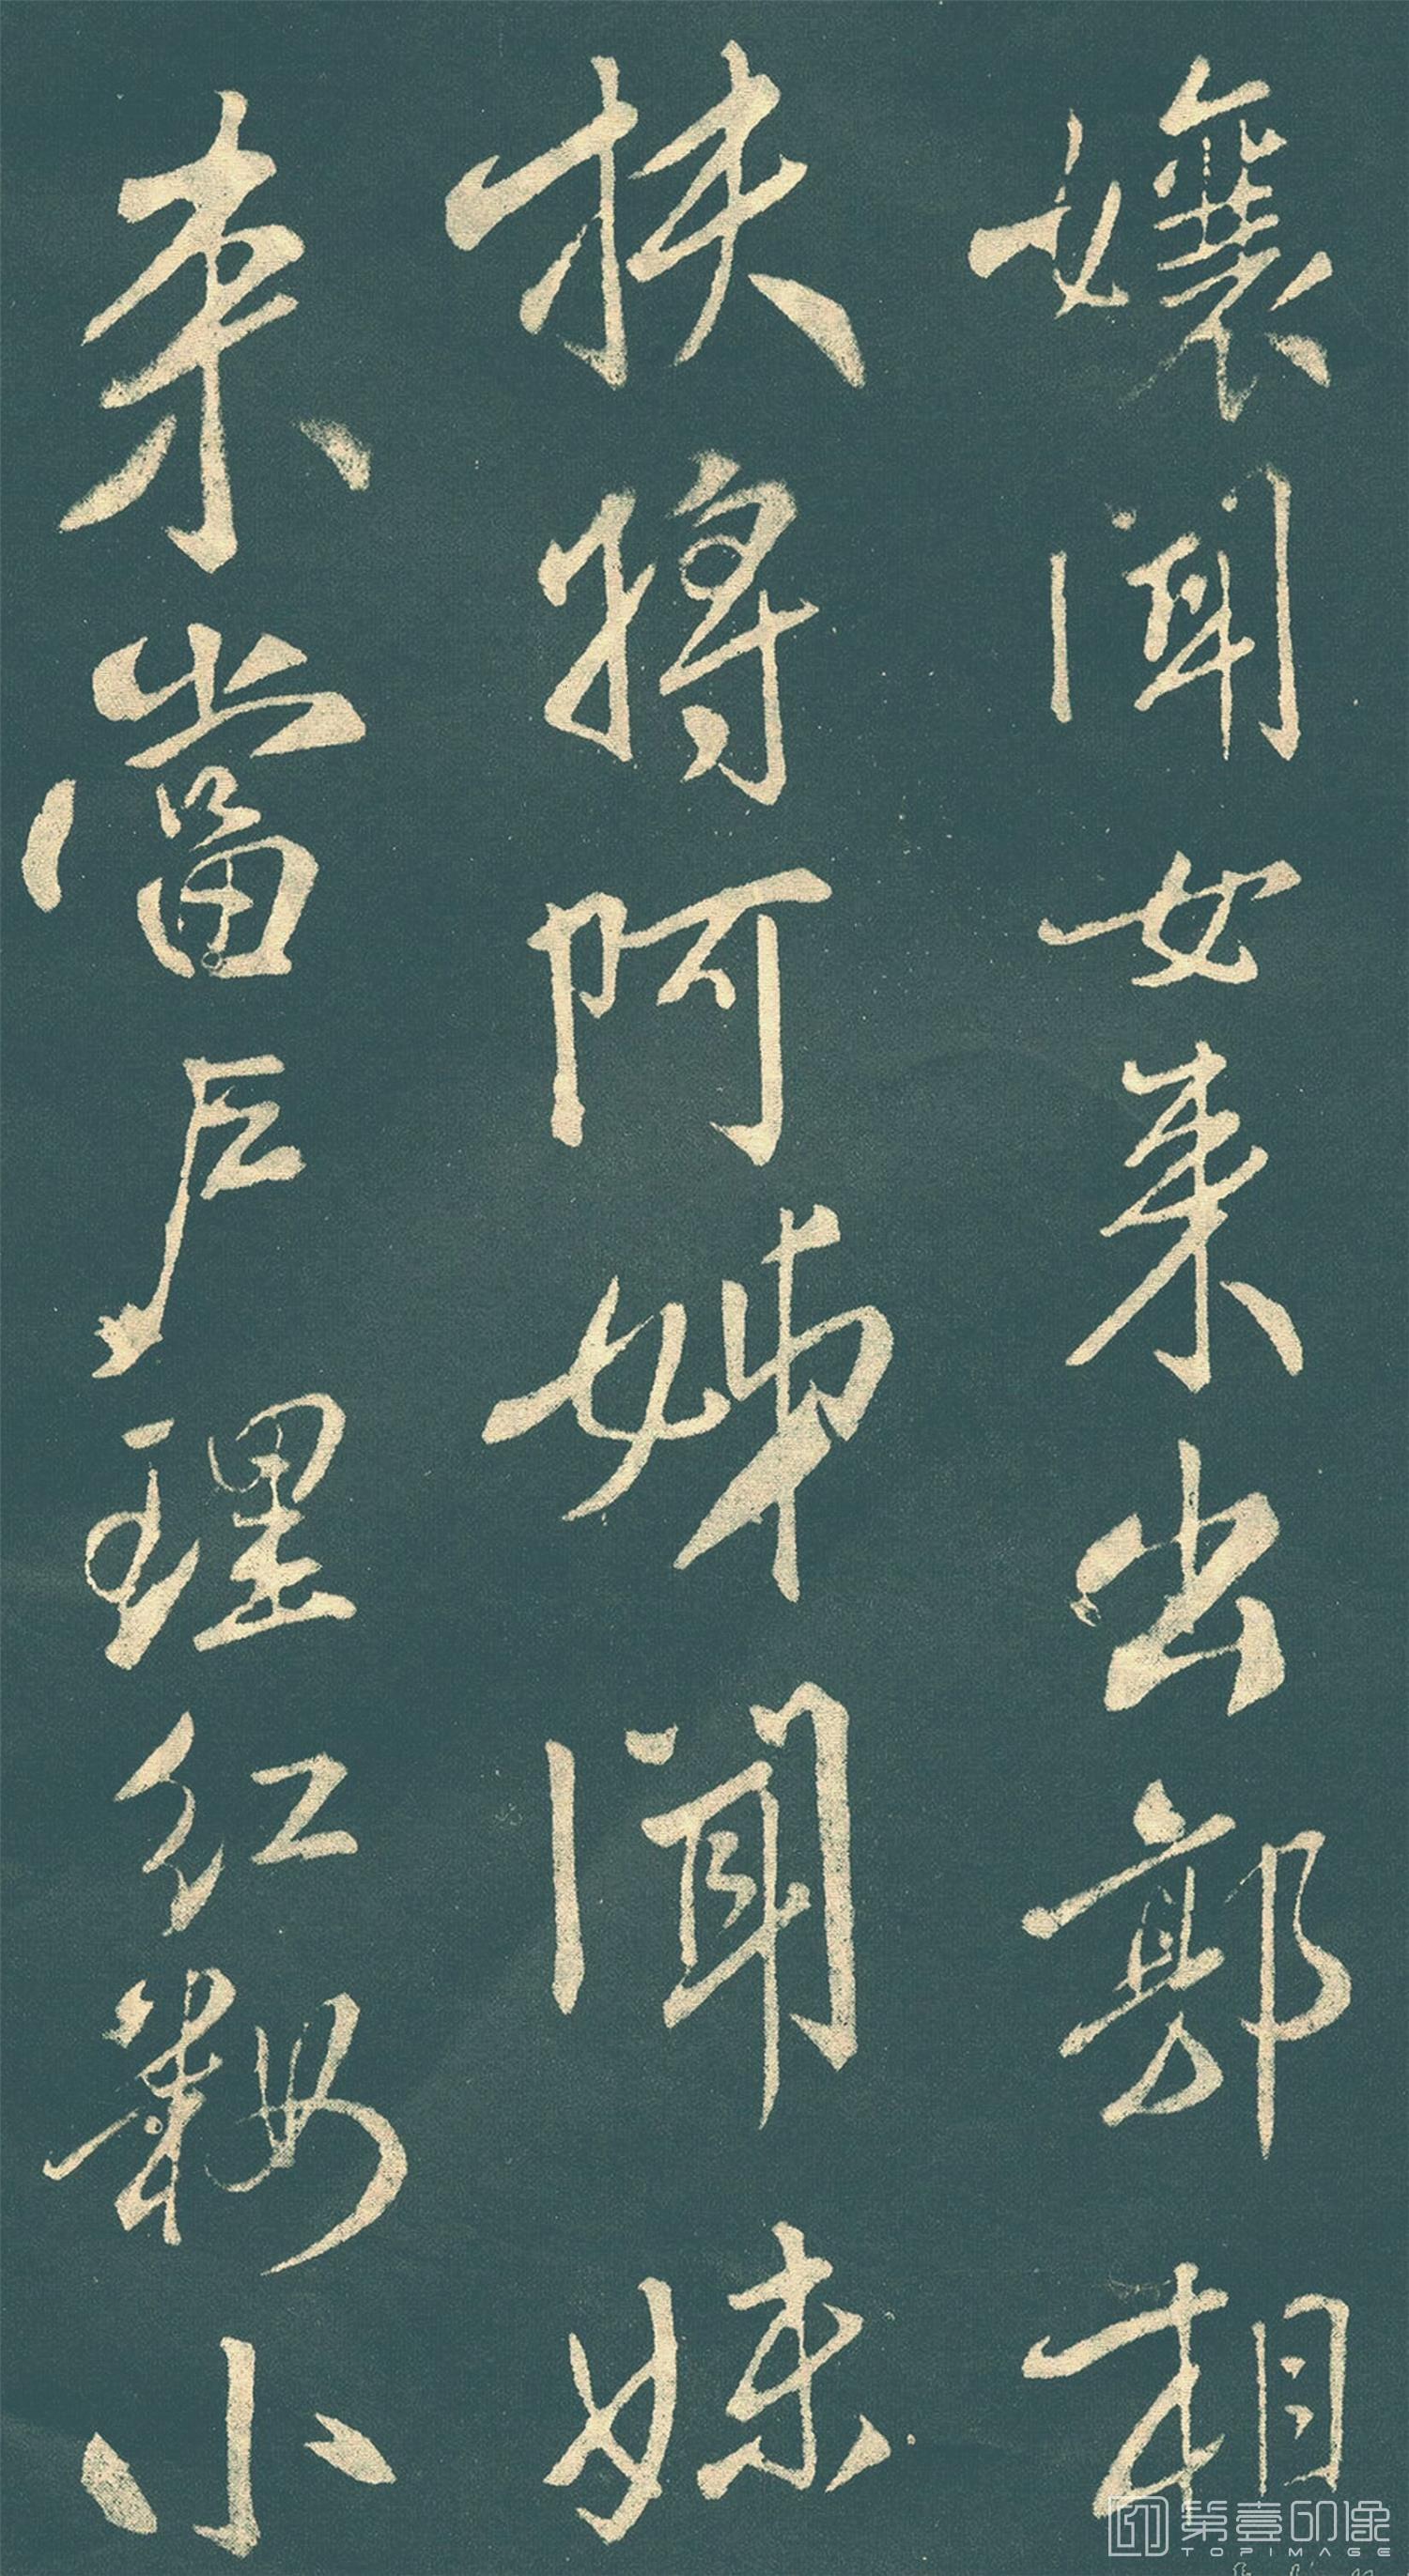 孃聞女来出郭相
扶將阿姊聞妹
来當户理紅粧小
第壹印像
TOPIMAGE